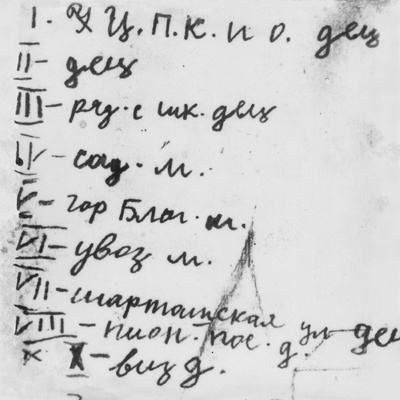 I. Ц. П. К. и О. дец
II - дец
III - ряд. с шк. дец
IV - сад. м.
V - гор Благ. м.
VI - увоз м.
VII - шарташская ул дец
VIII - пион. пос. д.
X - виз д.